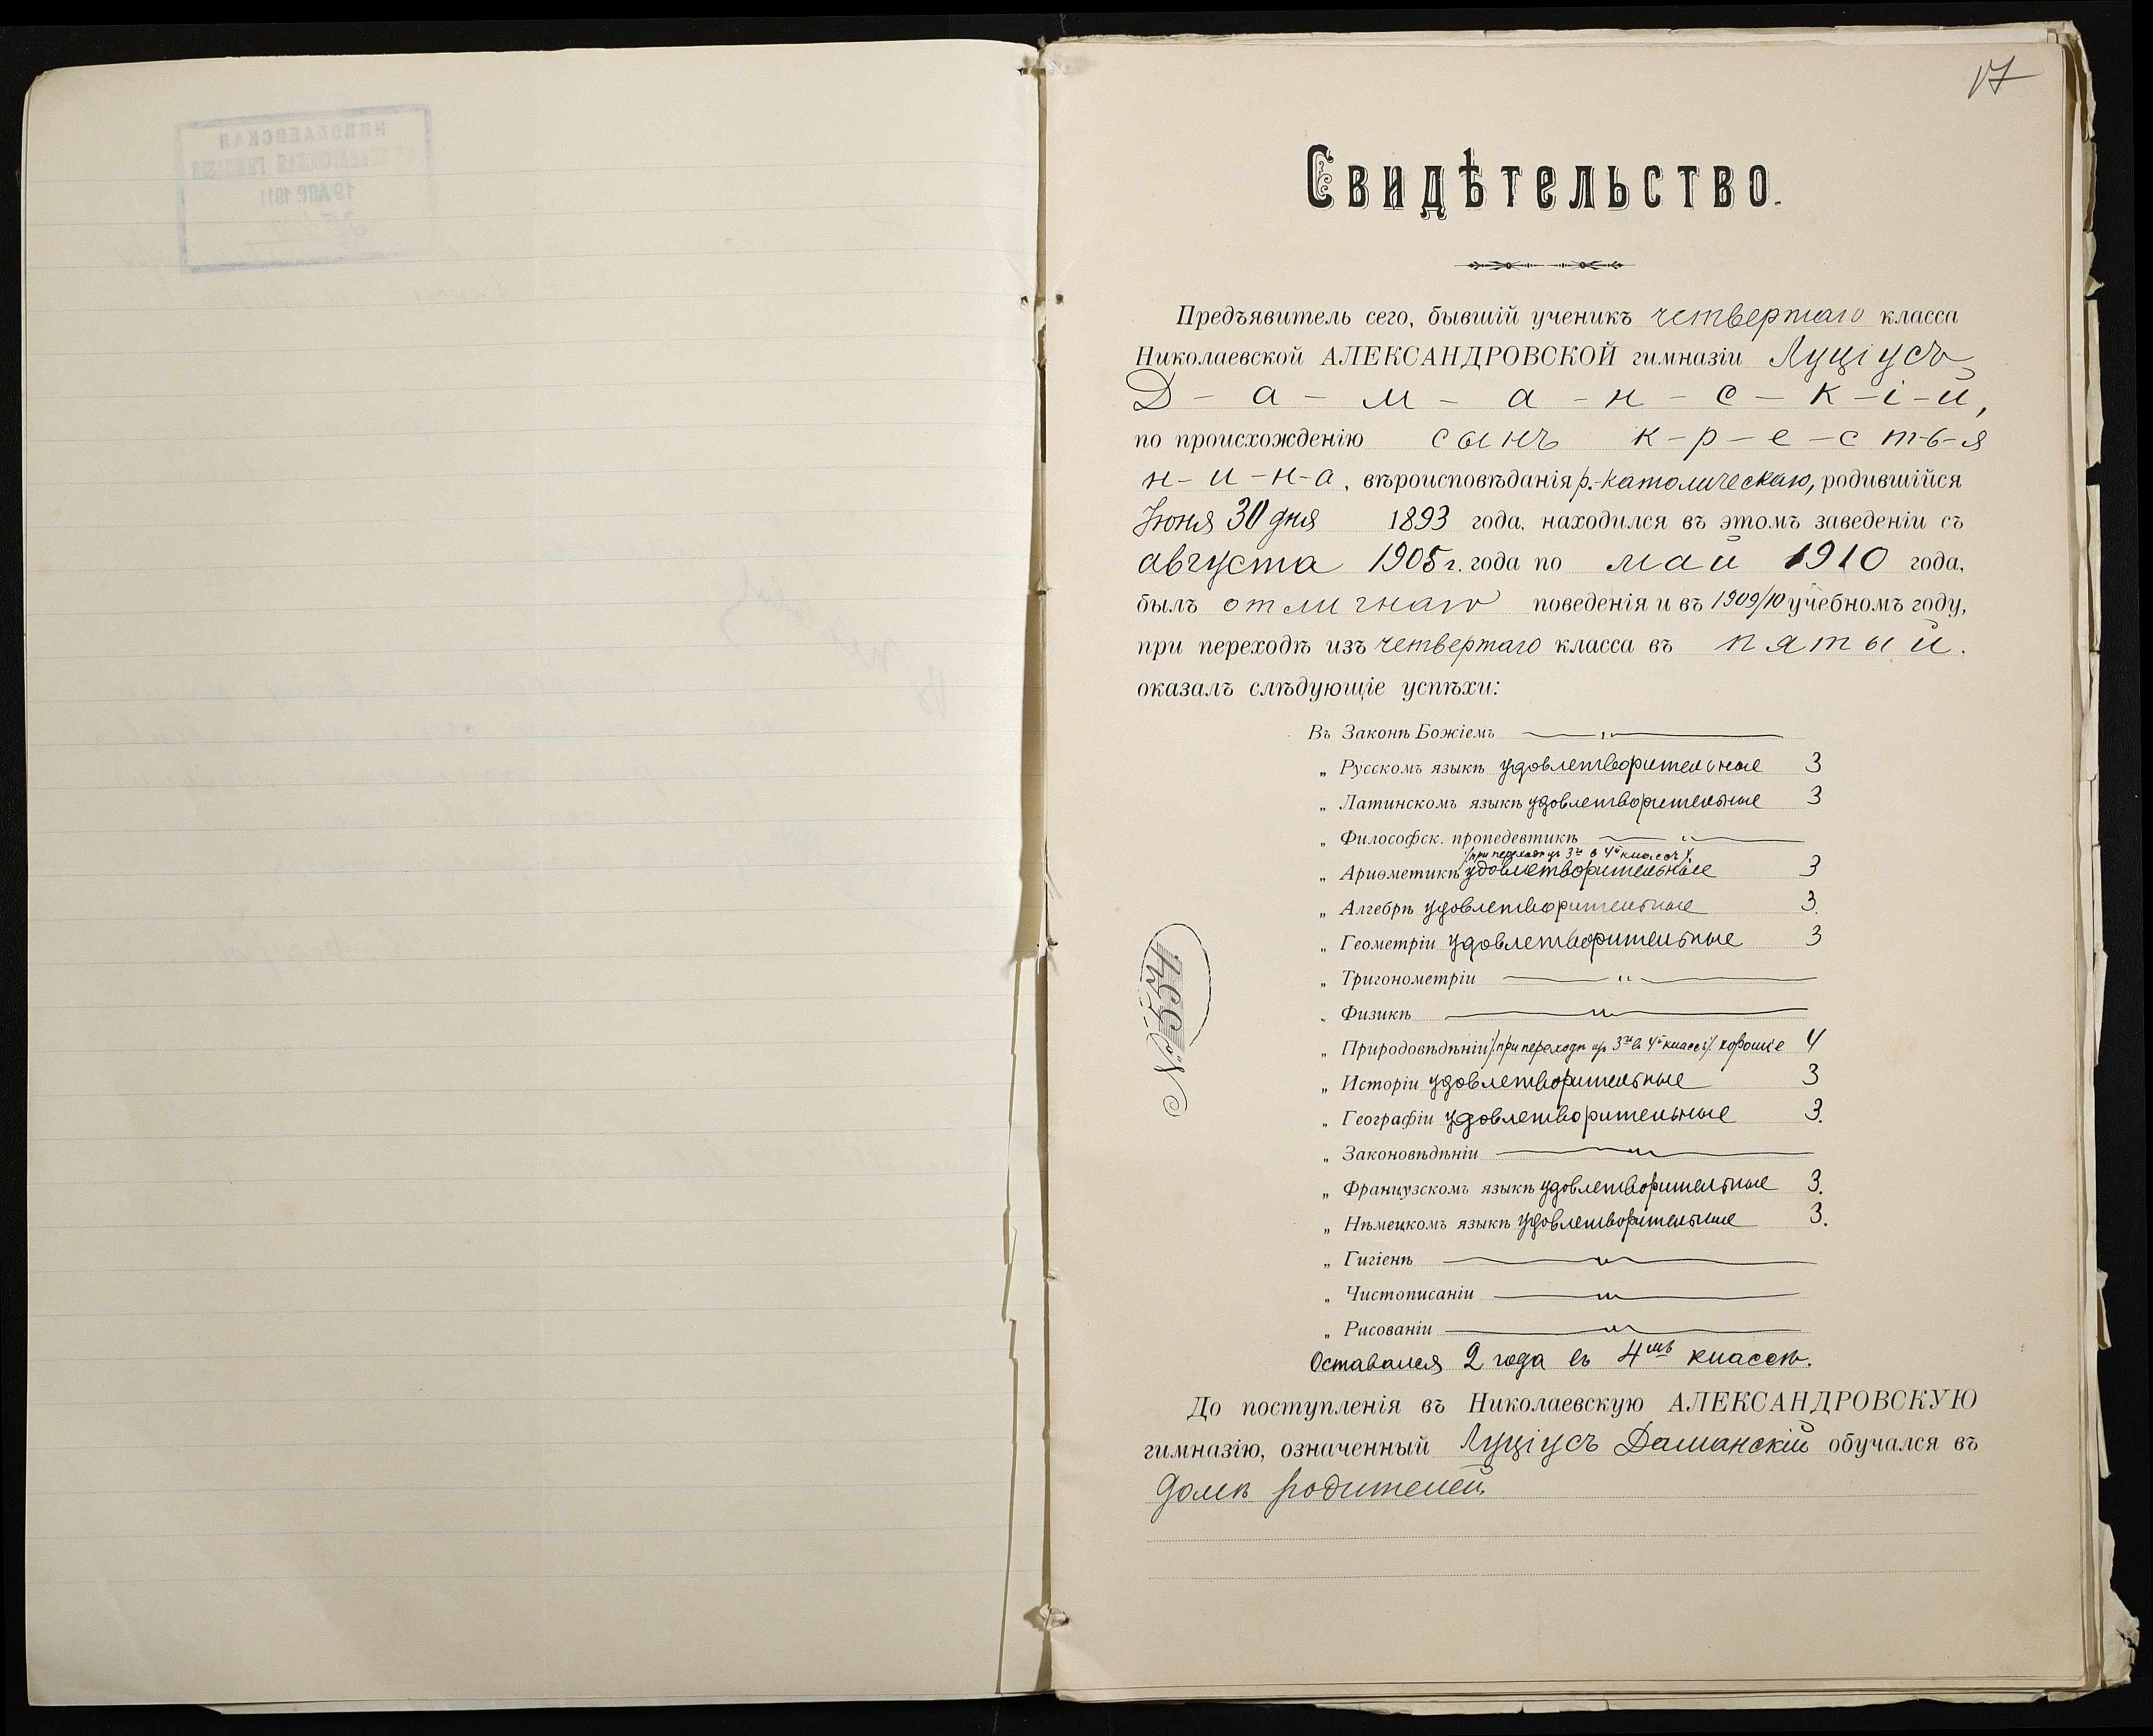 17
Свидѣтельство.
Предъявитель сего, бывшій ученикъ четвертаго класса
Николаевской АЛЕКСАНДРОВСКОЙ гимназіи Луціусъ
Д-а-м-а-н-с-к-і-й,
по происхожденію сынъ к-р-е-с т-ь-я
н-и-н-а, вѣроисповѣданія р.-католическаго, родившійся
Іюня 30 дня 1893 года, находился въ этомъ заведеніи съ
августа 1905 г. года по май 1910 года,
былъ отличнаго поведенія и въ 1909/10 учебномъ году,
при переходѣ изъ четвертаго класса въ пятый.
оказалъ слѣдующіе успѣхи:
Въ Законѣ Божіемъ
„ Русскомъ языкѣ удовлетворительные 3
„ Латинскомъ языкѣ удовлетворительные 3
„ Философск. пропедевтикѣ
/при переходѣ изъ 3го в 4й классъ/
„ Ариѳметикѣ удовлетворительные 3
„ Алгебрѣ удовлетворительные 3.
„ Геометріи удовлетворительные 3
„ Тригонометріи
„ Физикѣ
„ Природовѣдѣніи /при переходѣ изъ 3го в 4й классъ/ хорошіе 4
„ Исторіи удовлетворительные 3
„ Географіи удовлетворительные 3.
„ Законовѣдѣніи
„ Французскомъ языкѣ удовлетворительные 3.
„ Нѣмецкомъ языкѣ удовлетворительные 3.
„ Гигіенѣ
„ Чистописаніи
„ Рисованіи
Оставался 2 года въ 4мъ классѣ.
До поступленія въ Николаевскую АЛЕКСАНДРОВСКУЮ
гимназію, означенный Луціусъ Даманскій обучался въ
домѣ родителей.
НИКОЛАЕВСКАЯ
19 АПР 1911